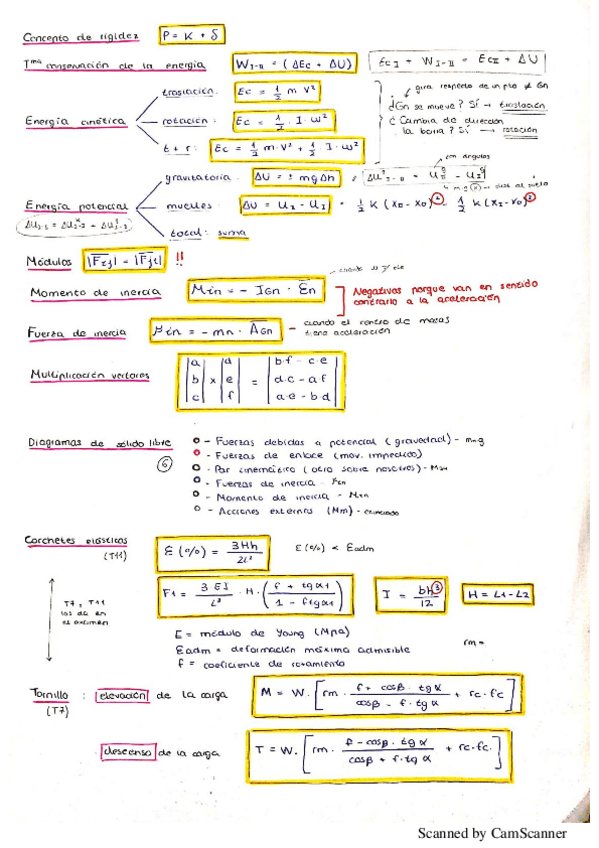 Concepto de rigidez P = K + δ
Tma conservación de la energía W I-II = (ΔEc + ΔU) Ec I + W I-II = Ec II + ΔU
Energía cinética
traslación: Ec = 1/2 m V²
rotación: Ec = 1/2 · I · ω²
t + r: Ec = 1/2 m · V² + 1/2 · I · ω²
gira respecto de un pto ≠ Gn
¿Gn se mueve? Sí → traslación
¿Cambia de dirección
la barra? Sí → rotación
con ángulos
Energía potencial
gravitatoria: ΔU = ± mgΔh
muelles: ΔU = U2 - U1 = 1/2 K (X0 - X0)² - 1/2 K (X2 - X0)²
total: suma
Módulos |Fij| = |Fji| !!
Momento de inercia Min = - IGn · Ën
Negativas porque van en sentido
contrario a la aceleración
Fuerza de inercia Fin = - mn · AGn - cuando el centro de masas
tiene aceleración
Multiplicación vectores
|a| |d| |b·f - c·e|
|b| x |e| = |d·c - a·f|
|c| |f| |a·e - b·d|
Diagramas de sólido libre
6
- Fuerzas debidas a potencial (gravedad) - mn·g
- Fuerzas de enlace (mov. impedido)
- Par cinemático (otro sobre nosotros) -
- Fuerzas de inercia - Fin
- Momento de inercia - Min
- Acciones externas (Mm) - enunciado
Corchetes elásticos
(T11)
ε(%) = 3Hh / 2L² ε(%) < εadm
F1 = 3EI / L³ · H · ( f + tgα1 / 1 - f tgα1 ) I = bh³ / 12 H = L1 - L2
T7 y T11
las da en
el examen
E = módulo de Young (Mpa)
εadm = deformación máxima admisible
f = coeficiente de rozamiento
rm =
Tornillo : elevación de la carga M = W · [ rm · f + cosβ · tgα / cosβ - f · tgα + rc · fc ]
(T7)
descenso de la carga T = W · [ rm · f - cosβ · tgα / cosβ + f · tgα + rc · fc ]
Scanned by CamScanner